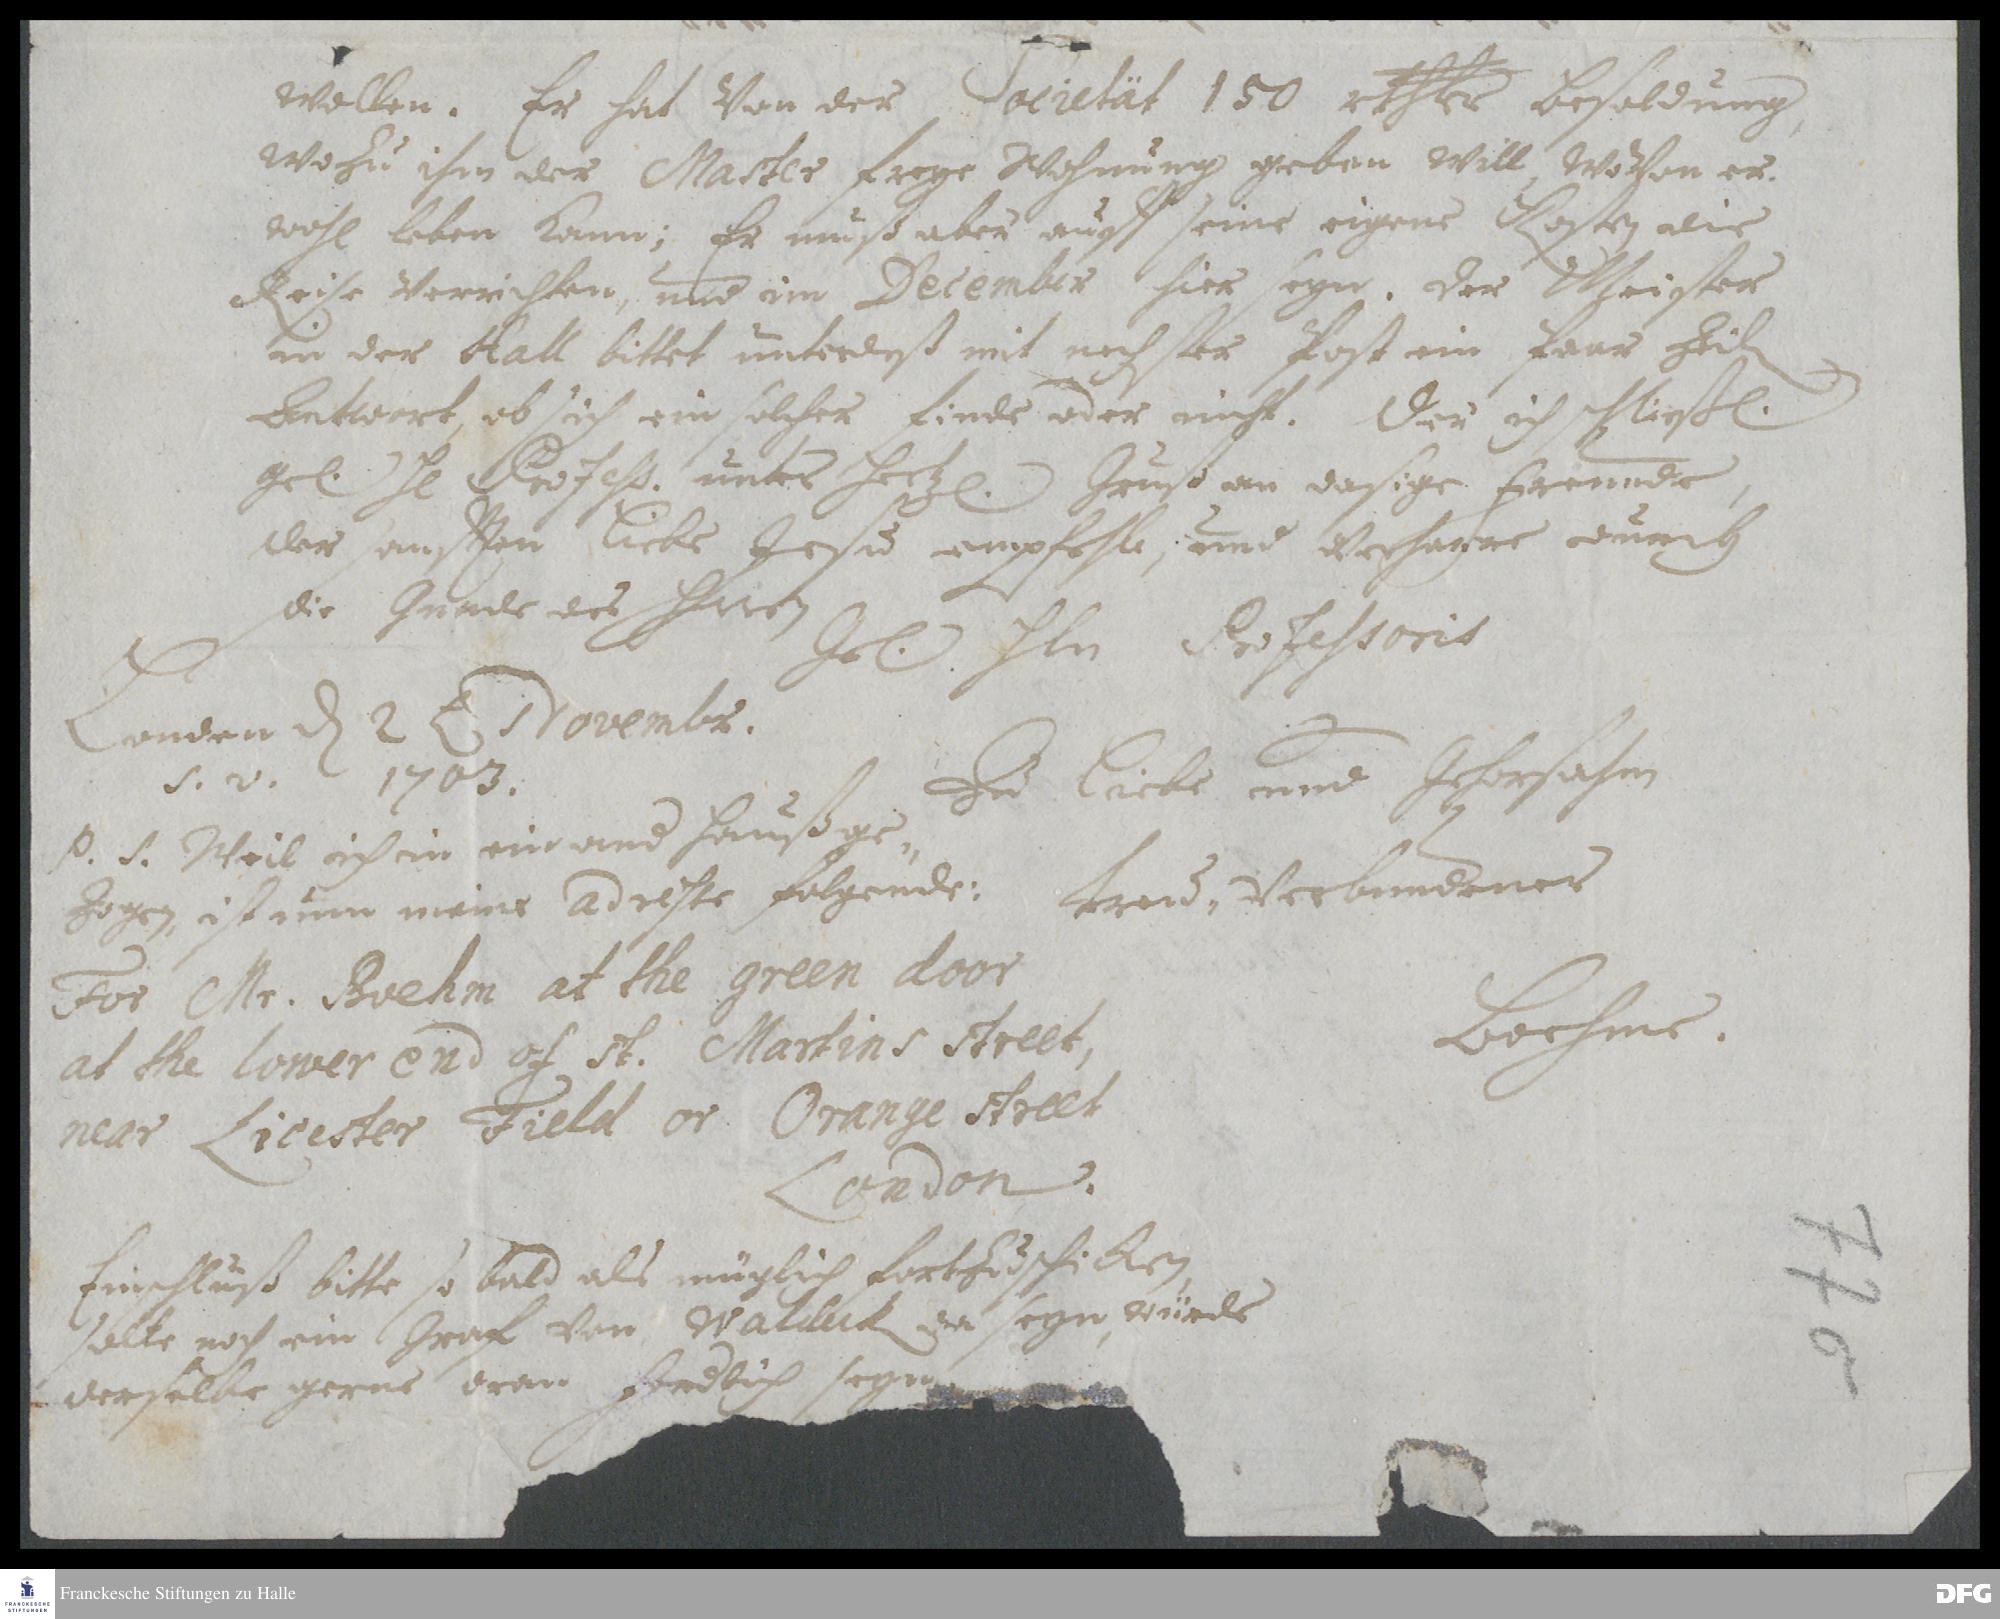 wollen. Er hat von der Societät 150 rthler besoldung,
wozu ihm der Master freye Wohnung geben will, wovon er
wohl leben kann; Er muß aber auff seine eigene Kosten die
Reise verrichten, und im December hier seyn. Der Meister
in der Hall bittet unterdeß mit nechster Post ein paar Zeilen
Antwort, ob sich ein solcher finde oder nicht. Der ich schließl.
gel. H Profess. unter hertzl. Gruß an dasige Freunde,
der sanfften Liebe Jesu empfehle, und verharre durch
die Gnade des Herren
Gel. Hln Professoris
Londen d 2 Novembr.
s. v. 1703.
Zu Liebe und Gehorsahm
treu-verbundener
Boehme.
P. S. Weil ich in ein and hauß ge-
zogen, ist nun meine adresse folgende:
For Mr. Boehm at the green door
at the lower end of St. Martins street,
near Licester Field or Orange street
London.
Einschluß bitte so bald als müglich fortzuschicken,
solte noch ein Graf von Waldeck da seyn, würde
derselbe gerne dran seyn.
776
Franckesche Stiftungen zu Halle
FRANCKESCHE
STIFTUNGEN
DFG